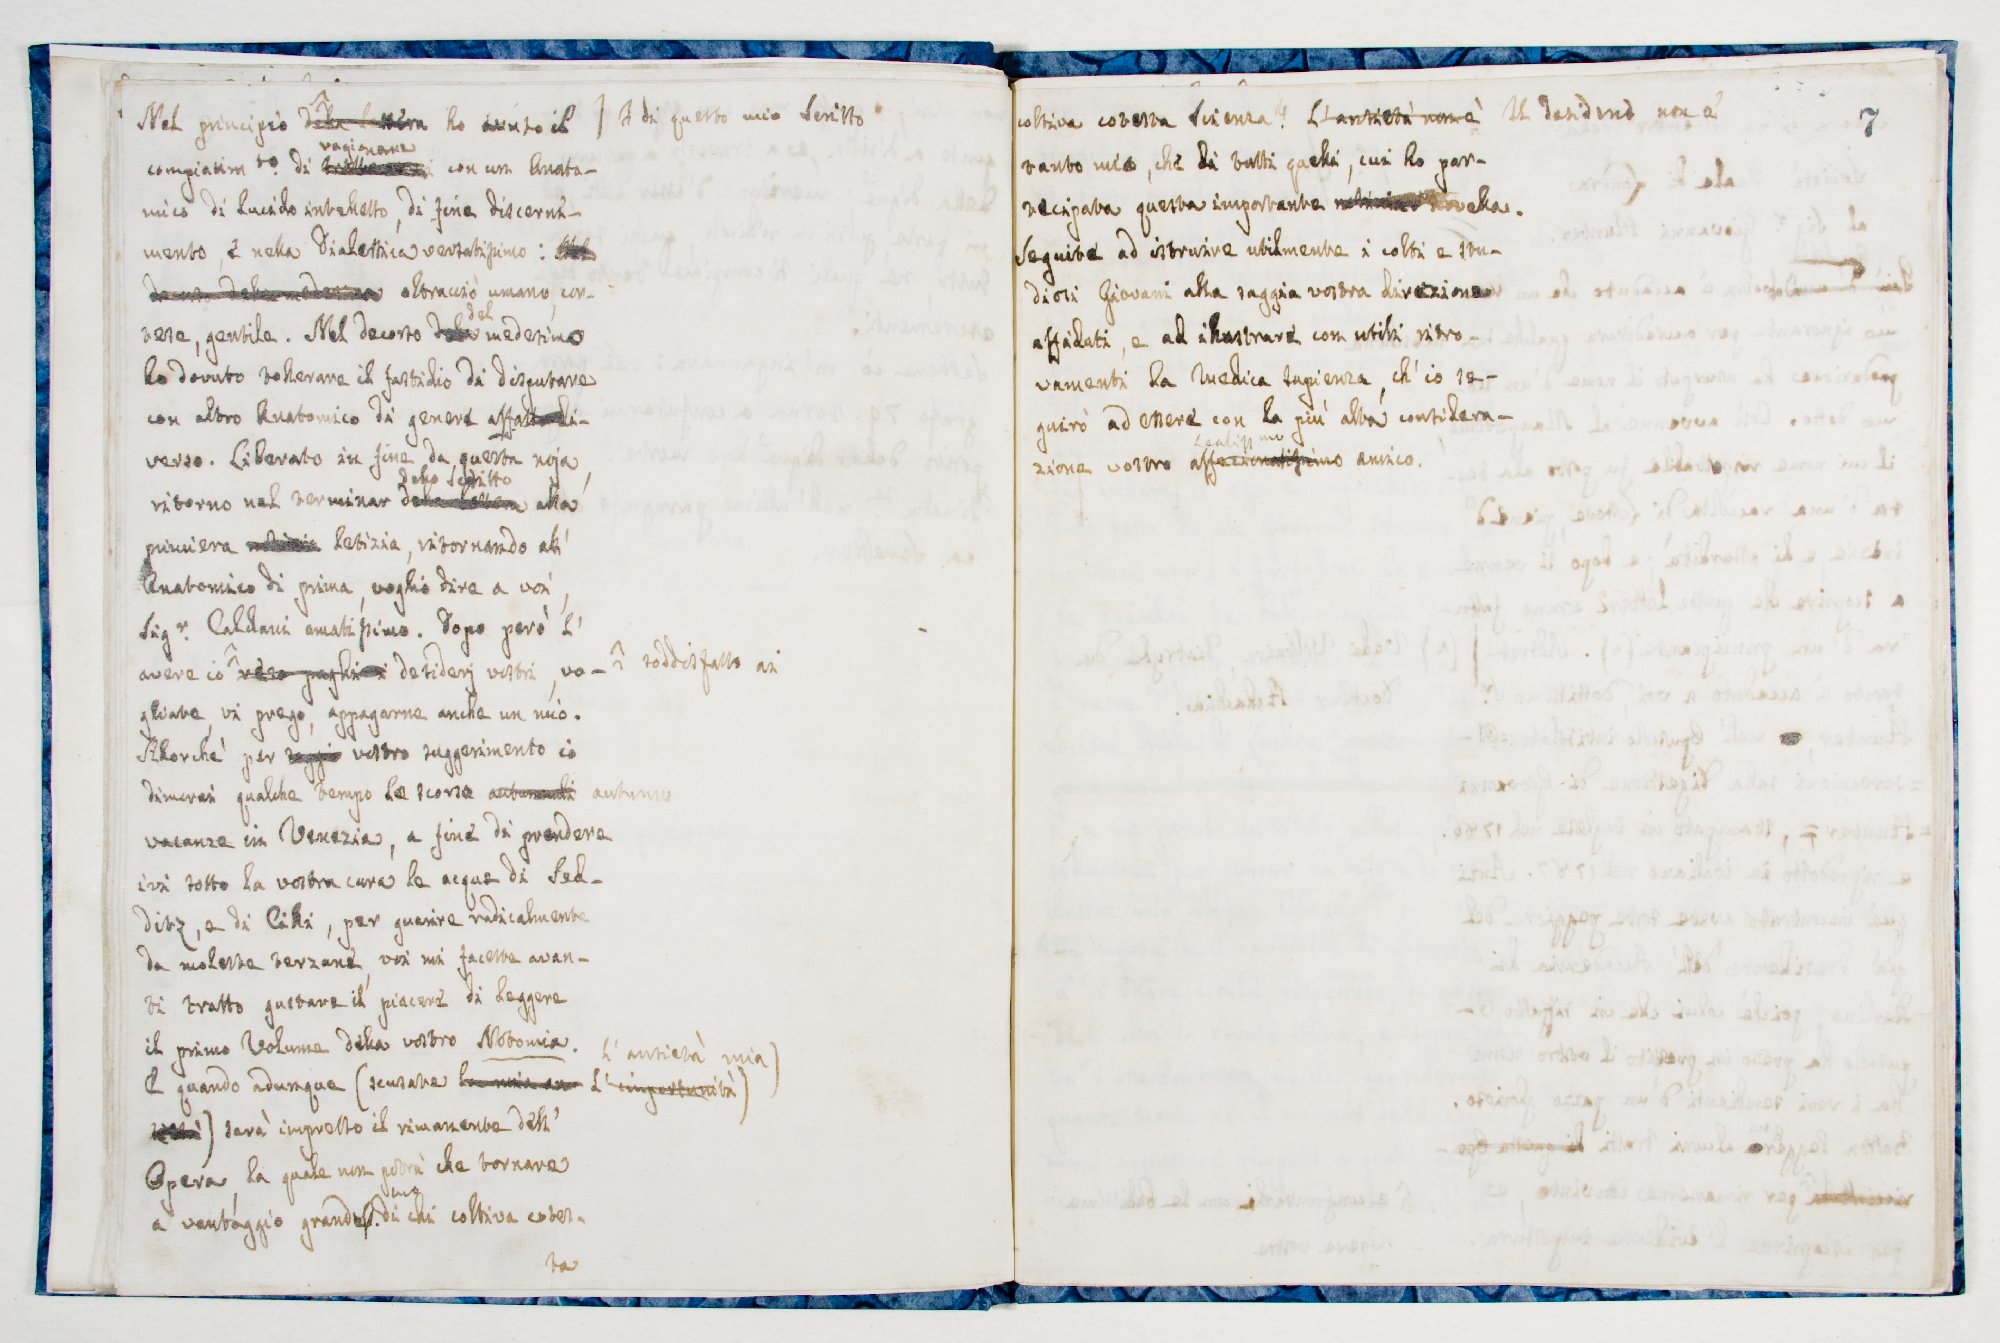 Nel principio della lettera ho avuto il | I di questo mio Scritto
compiacim.to di ragionare con un Anato-
mico di lucido intelletto, di fine discerni-
mento, e nella Dialettica versatissimo: Nel
oltracciò umano, cor-
tese, gentile. Nel decorso del medesimo
ho dovuto tollerare il fastidio di disputare
con altro Anatomico di genere affatto di-
verso. Liberato in fine da questa noja,
dello Scritto
ritorno nel terminar della lettera alla
primiera letizia, ritornando all'
Anatomico di prima, voglio dire a voi,
Sig.r Caldani amatissimo. Dopo però l'
avere io reso paghi i desiderj vostri, vo- soddisfatto ai
gliate, vi prego, appagarne anche un mio.
Allorché per saggio vostro suggerimento io
dimorai qualche tempo le scorse autunnali autunno
vacanze in Venezia, a fine di prendere
ivi sotto la vostra cura le acque di Sed-
litz, e di Cilli, per guarire radicalmente
da moleste terzane, voi mi faceste avan-
ti tratto gustare il piacere di leggere
il primo Volume della vostra Notomia.
L'ansietà mia)
E quando adunque (scusate la mia an l'importunità)
sietà) sarà impresso il rimanente dell'
Opera, la quale non potrà che tornare
a vantaggio grandiss.mo di chi coltiva cotes-
ta
7
coltiva cotesta Scienza? L'ansietà non è Il desiderio non è
tanto mio, che di tutti quelli, cui ho par-
tecipata questa importante notizia novella.
Seguite ad istruire utilmente i colti e stu-
diosi Giovani alla saggia vostra direzione
affidati, e ad illustrare con utili ritro-
vamenti la Medica Sapienza, ch'io se-
guirò ad essere con la più alta considera-
lealissimo
zione vostro affezionatissimo amico.